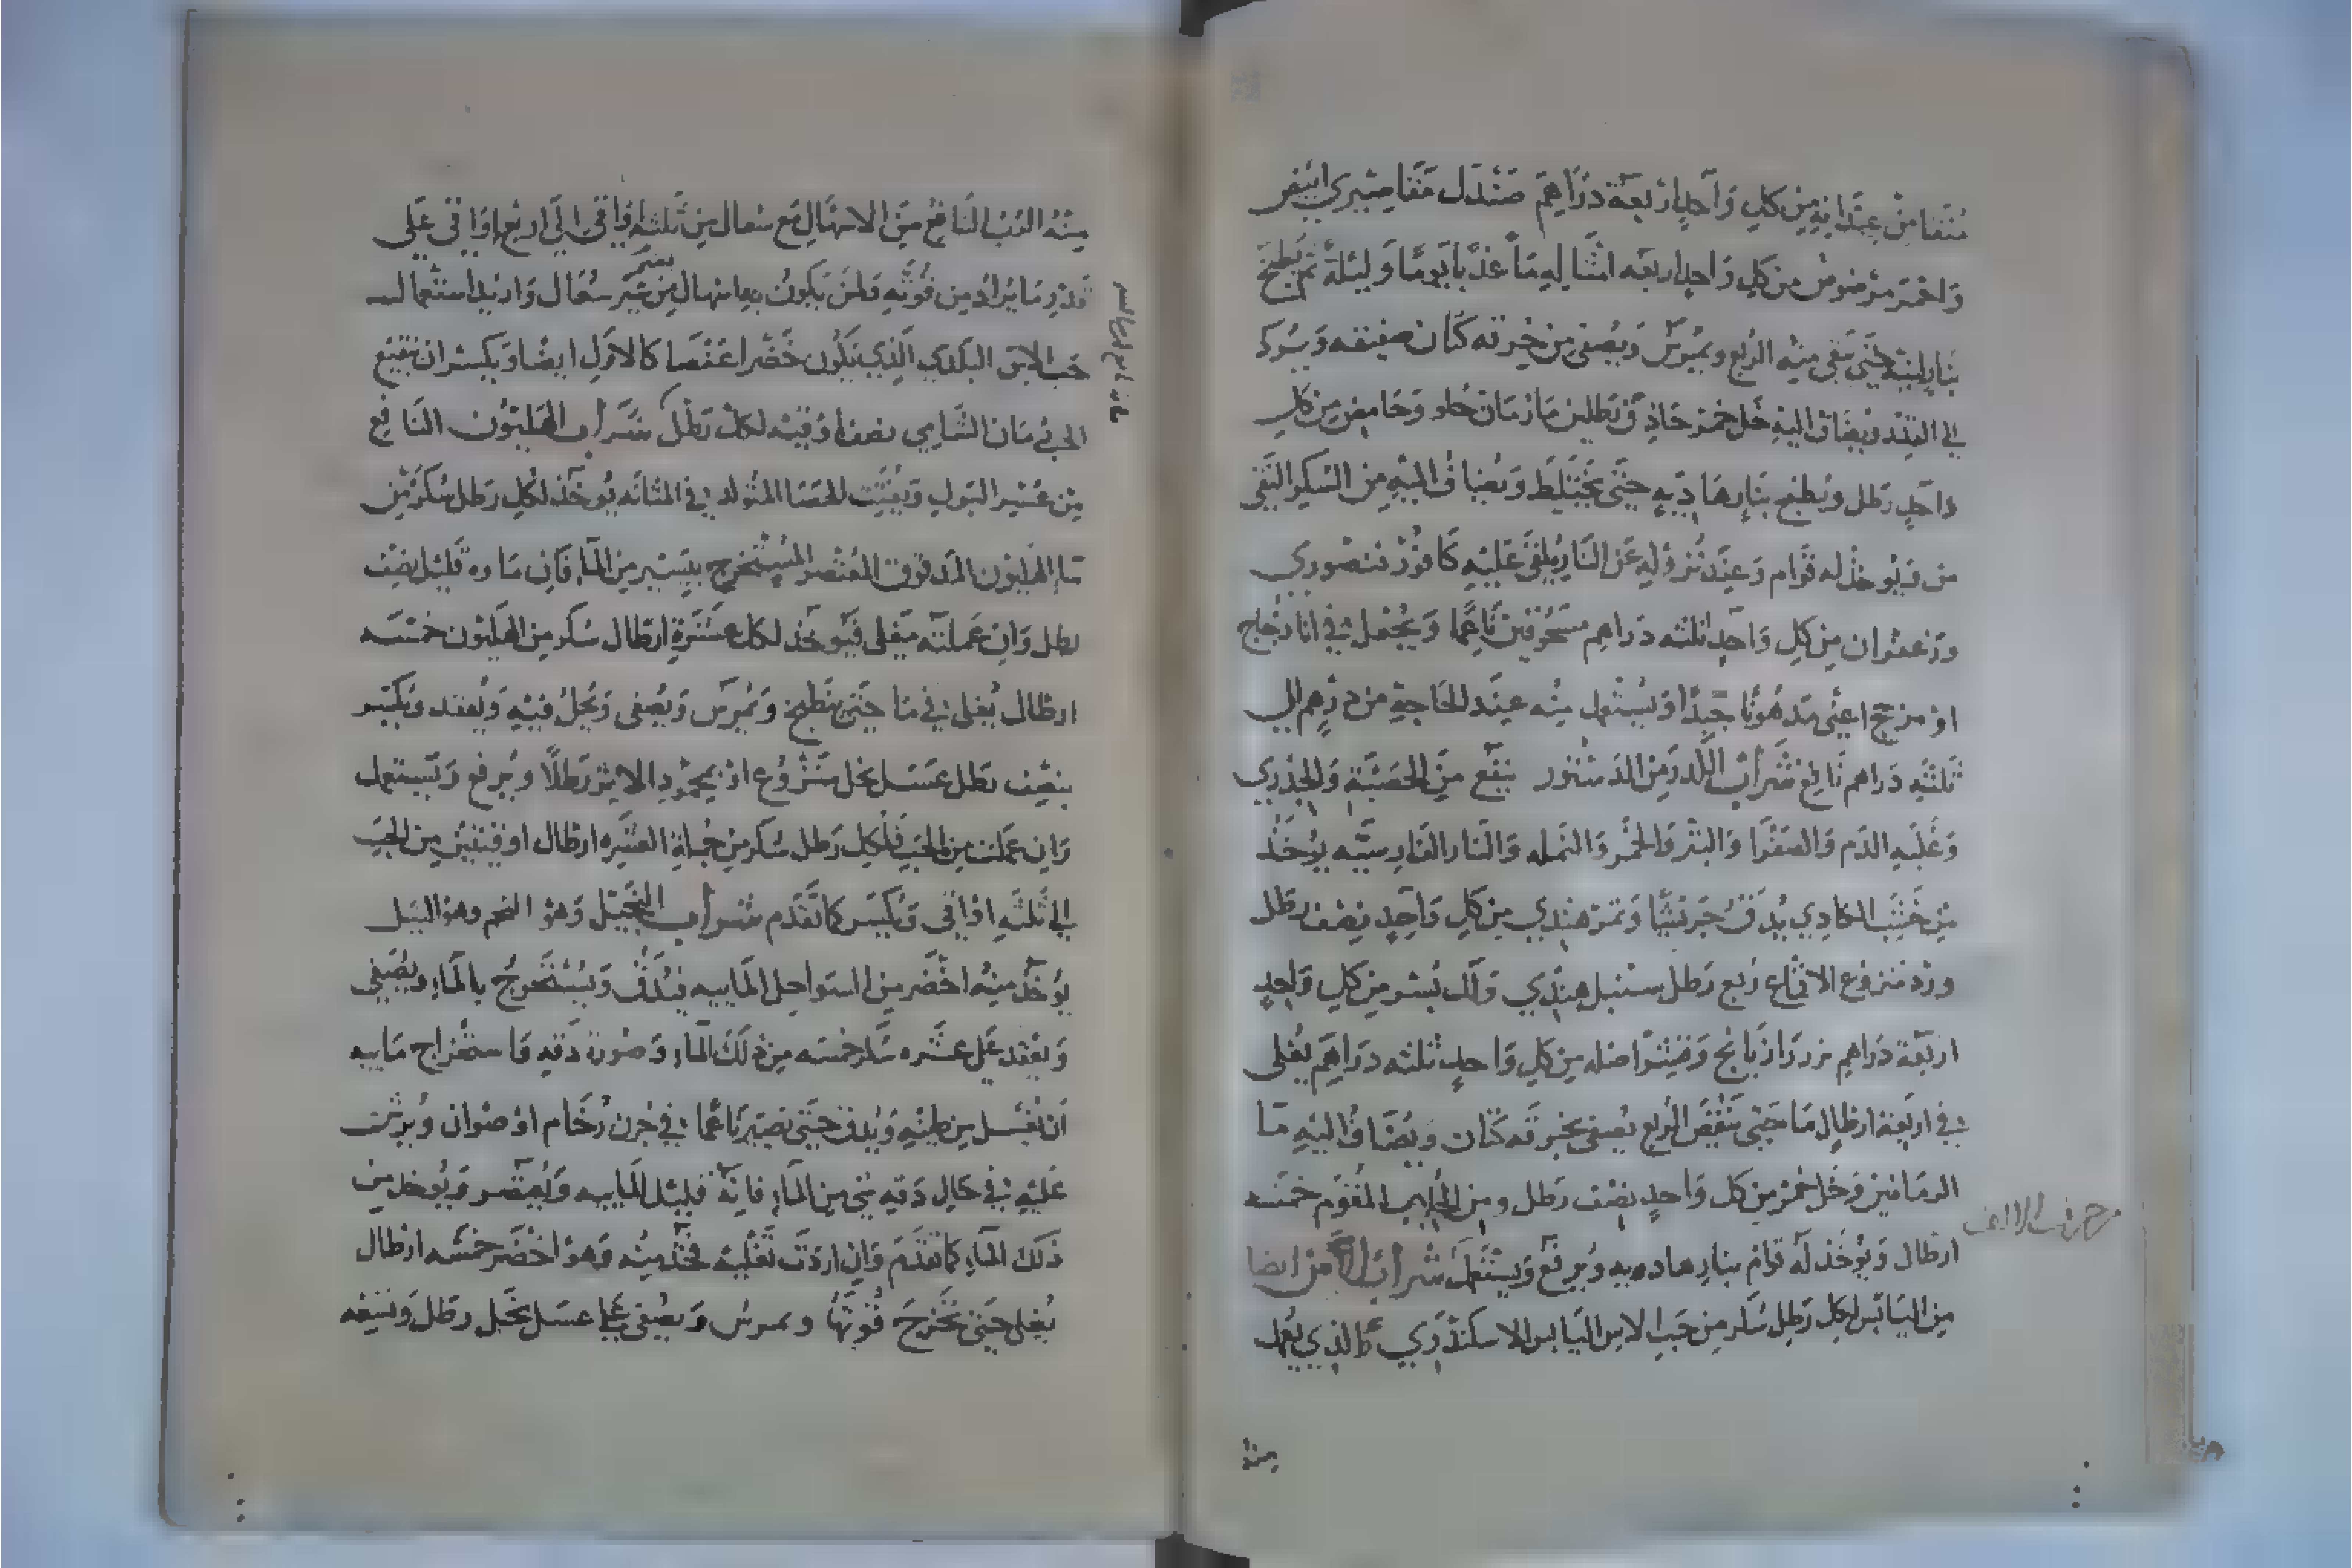 منقا من عيدانه من كل واحد اربعة دراهم صندل مقاصيري ابيض
واحمر مرضوض من كل واحد اربعه امثاله ما عذبا يوما وليلة ثم يطبخ
بنار لينه حتى يبقى منه الربع ويمرس ويصفى من خرقه كتان صفيقه ويترك
الى القدر ويضاف اليه خل خمر حاذق رطلين ما رمان حلو وحامض من كل
واحد رطل ويطبخ بنار هاديه حتى يختلط ويضاف اليه من السكر النقي
من ويوخذ له قوام وعند نزوله عن النار يلقى عليه كافور فنصوري
وزعفران من كل واحد ثلثه دراهم مسحوقين ناعما ويجعل في انا زجاج
او مزجج اعني مدهونا جيدا ويستعمل منه عند الحاجة من درهم الى
ثلثه دراهم نافع شراب الكدر من الدستور ينفع من الحصبة والجدري
وغلبه الدم والصفرا والبثر والحمر والنمله والنار الفارسيه يوخذ
من خشب الكادي يدق جريشا وتمر هندي من كل واحد نصف رطل
ورد منزوع الاقماع ربع رطل سنبل هندي ولك بسر من كل واحد
اربعة دراهم بزر رازيانج وقشر اصله من كل واحد ثلثه دراهم يغلى
في اربعة ارطال ما حتى ينقص الربع يصفى بخرقه كتان ويضاف اليه ما
الرمانين وخل خمر من كل واحد نصف رطل ومن الجلاب المقوم خمسه
حرف الالف
ارطال ويوخذ له قوام بنار هاديه ويرفع ويستعمل شراب الاس ايضا
من اليابس لكل رطل سكر من حب الاس اليابس الاسكندري كالذي يعمل
منه
منه الرب النافع من الاسهال مع سعال من ثلثه اواقي الى اربع اواقي على
قدر ما يراد من قوته ولمن يكون به اسهال من غير سعال واريد استعماله
حب الاس البلدي الذي يكون خضرا عفصا كالاول ايضا ويكسر ان نقيع
الحب رمان الشامي نصف اوقيه لكل رطل شراب الهليون النافع
من عسر البول ويفتت الحصا المتولد في المثانه يوخذ لكل رطل سكر من
ما الهليون المدقوق المعتصر المستخرج بيسير من الماء فان ماوه قليل نصف
رطل وان عملته مغلى فيوخذ لكل عشرة ارطال سكر من الهليون خمسه
ارطال يغلى في ما حتى ينطبخ ويمرس ويصفى ويحل فيه ويعقد ويكسر
بنصف رطل عسل نحل منزوع
وان عملت من الحب فلكل رطل سكر من جملة العشره ارطال اوقيتين من الحب
الى ثلثه اواقي ويكسر كما تقدم شراب النجيل وهو النجم وهو الثيل
يوخذ منه اخضر من السواحل المائيه فيدق ويستخرج بالماء ويصفى
ويعقد على عشره سكر خمسه من ذلك الماء وصورة دقه واستخراج مايه
ان يغسل من طينه ويدق حتى يصير ناعما في جرن رخام او صوان ويرش
عليه في حال دقه شي من الماء فانه قليل المائيه ويعصر ويوخذ من
ذلك الماء كما تقدم وان اردت تغليه فخذ منه وهو اخضر خمسه ارطال
يغلى حتى تخرج قوتها ويمرس ويصفى على عسل نحل رطل ونصفه